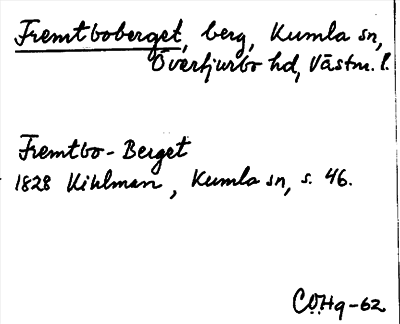 Fremtboberget, berg, Kumla sn,
Övertjurbo hd, Västm. l.
Fremtbo-Berget
1828 Kihlman, Kumla sn, s. 46.
CÖHg-62